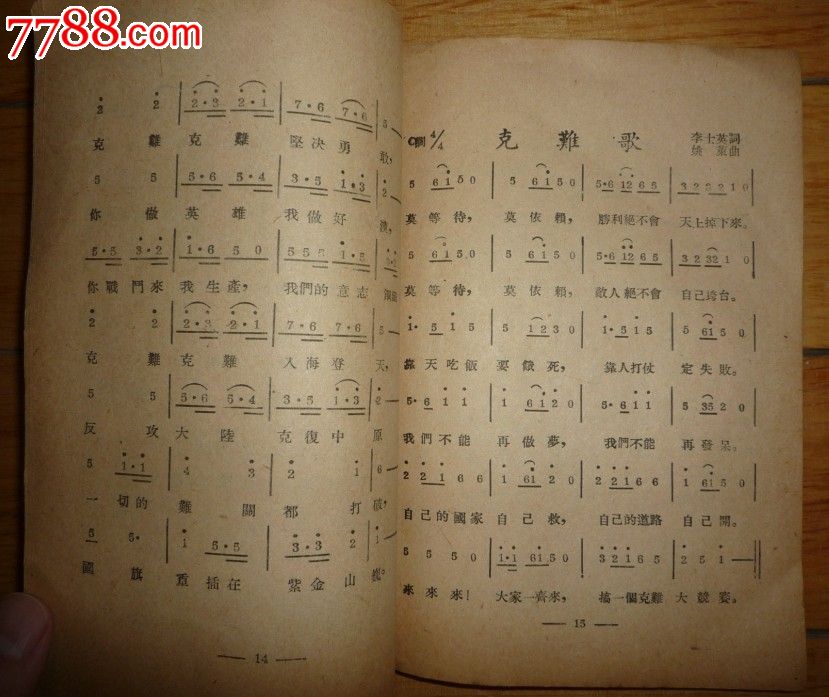 7788.com
2 2 2·3 2·1 7·6 7·6 5—
克難克難堅決勇敢,
5 5 5·6 5·4 3·5 1·3 2—
你做英雄我做好漢,
5·5 3·2 1·6 5 0 5 5 5 1·5
你戰鬥來我生產, 我們的意志
2 2 2·3 2·1 7·6 7·6 5—
克難克難入海登天,
5 5 5·6 5·4 3·5 1·3 2—
反攻大陸克復中原
5 1·1 4 3 2 1 6—
一切的難關都打破,
5 5· 1 5·5 3·3 2 1—
國旗重插在紫金山
— 14 —
C調 4/4 克難歌 李士英詞
姚 曲
5 61 5 0 5 61 5 0 5·6 12 6 5 3 2 2 2 1 0
莫等待, 莫依賴, 勝利絕不會 天上掉下來。
5 61 5 0 5 61 5 0 5·6 12 6 5 3 2 32 1 0
莫等待, 莫依賴, 敵人絕不會 自己垮台。
1· 5 1 5 5 1 2 3 0 1·5 1 5 5 61 5 0
靠天吃飯 要餓死, 靠人打仗 定失敗。
5·6 1 1 1 61 2 0 5·6 1 1 5 35 2 0
我們不能 再做夢, 我們不能 再發呆。
2 2 1 6 6 1 61 2 0 2 2 1 6 6 1 61 5 0
自己的國家 自己救, 自己的道路 自己開。
5 5 5 0 1·1 61 5 0 3 2 1 6 2 5 1—
來來來! 大家一齊來, 搞一個克難 大競賽。
— 15 —